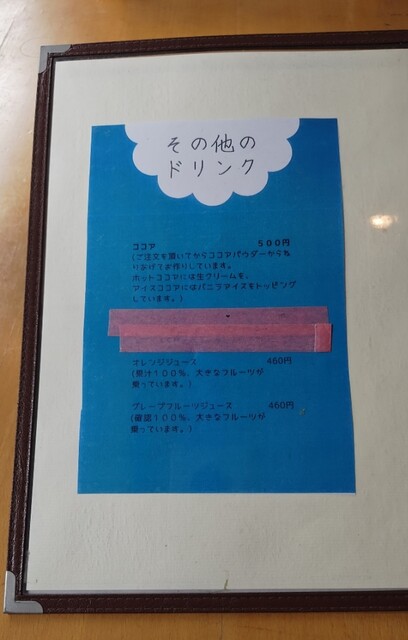 その他の
ドリンク
ココア 500円
(ご注文を頂いてからココアパウダーからね
りあげてお作りしています。
ホットココアには生クリームを、
アイスココアにはバニラアイスをトッピング
しています。)
オレンジジュース 460円
(果汁100%、大きなフルーツが
乗っています。)
グレープフルーツジュース 460円
(確認100%、大きなフルーツが
乗っています。)